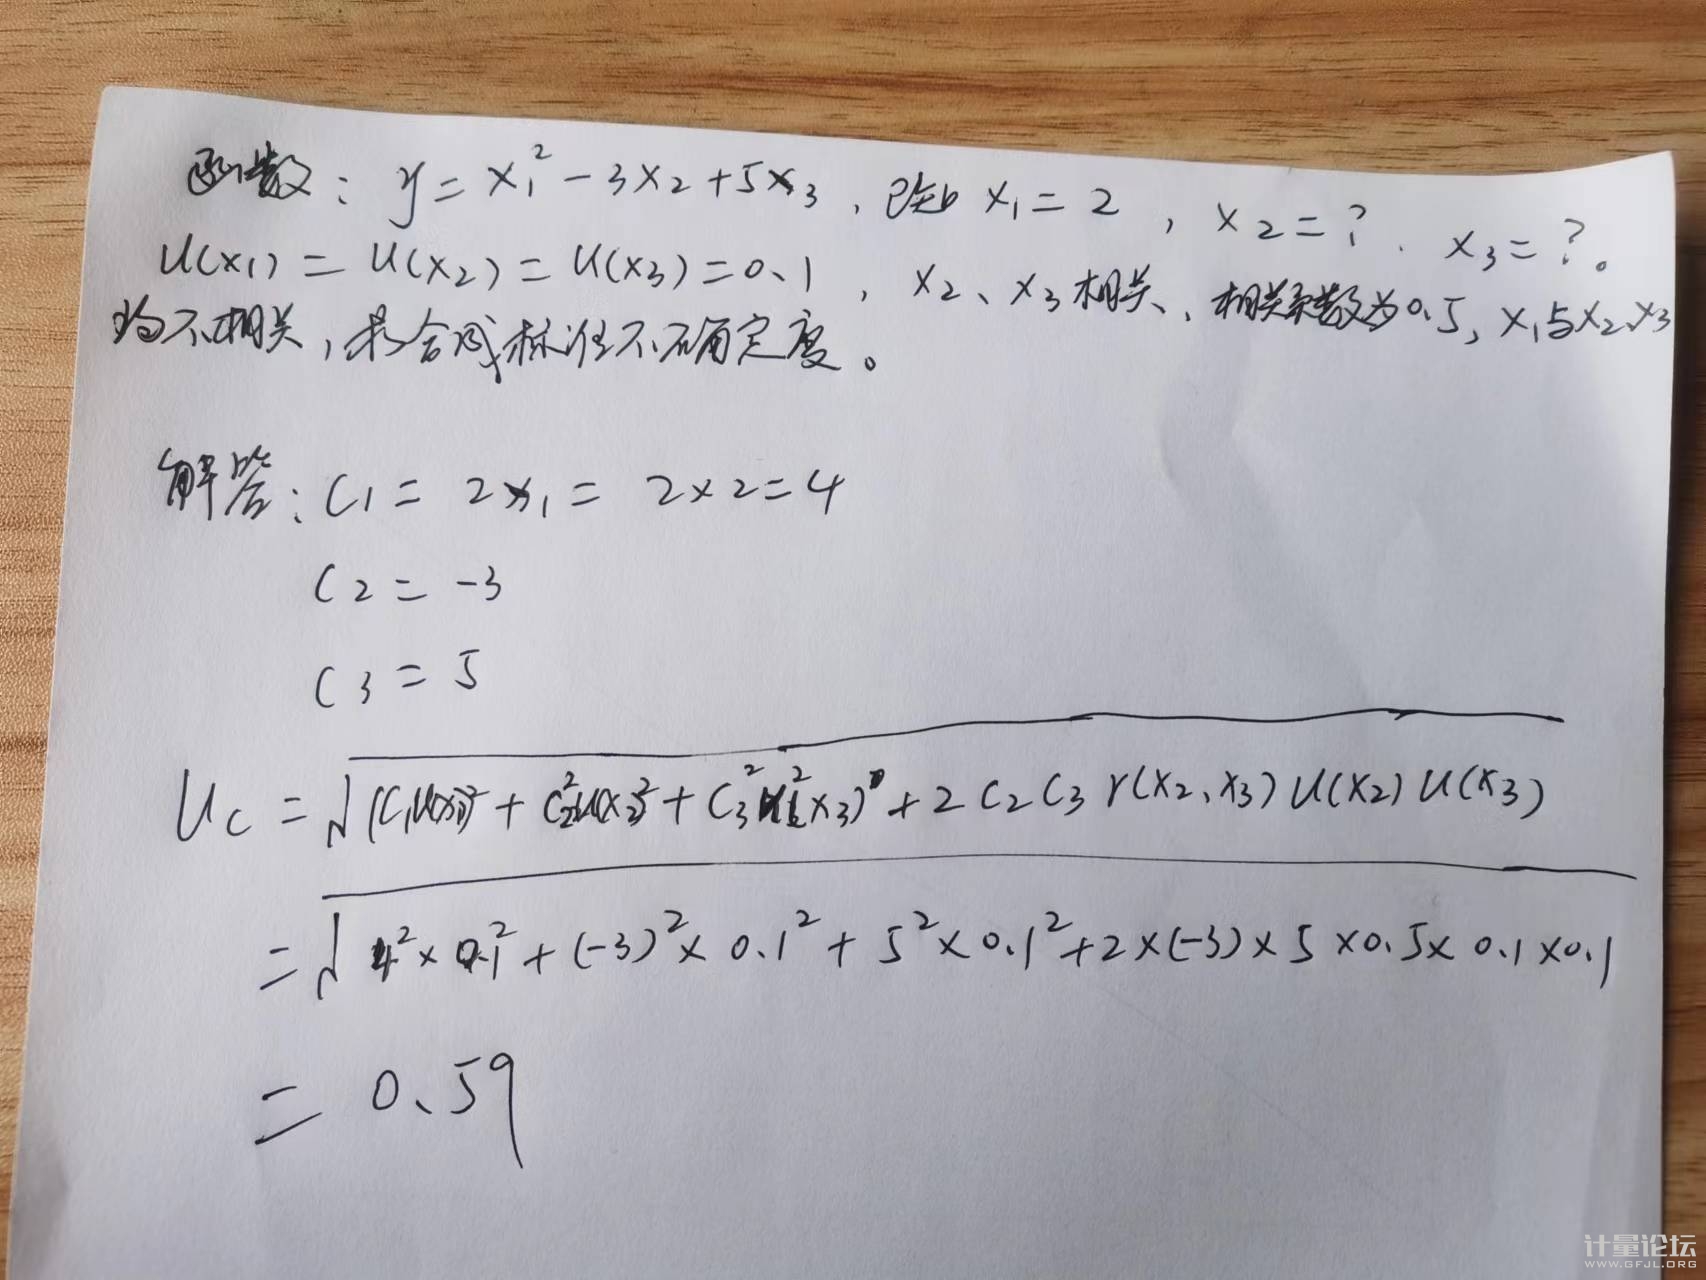 函数：y=x₁²-3x₂+5x₃，已知 x₁=2，x₂=？.x₃=？。
u(x₁)=u(x₂)=u(x₃)=0.1，x₂、x₃相关，相关系数为0.5，x₁与x₂、x₃
均不相关，求合成标准不确定度。
解答：C₁=2x₁=2×2=4
C₂=-3
C₃=5
u_c=√((C₁u(x₁))²+C₂²u(x₂)²+C₃²u²(x₃)+2C₂C₃r(x₂、x₃)u(x₂)u(x₃))
=√(4²×0.1²+(-3)²×0.1²+5²×0.1²+2×(-3)×5×0.5×0.1×0.1)
=0.59
计量论坛
WWW.GFJL.ORG